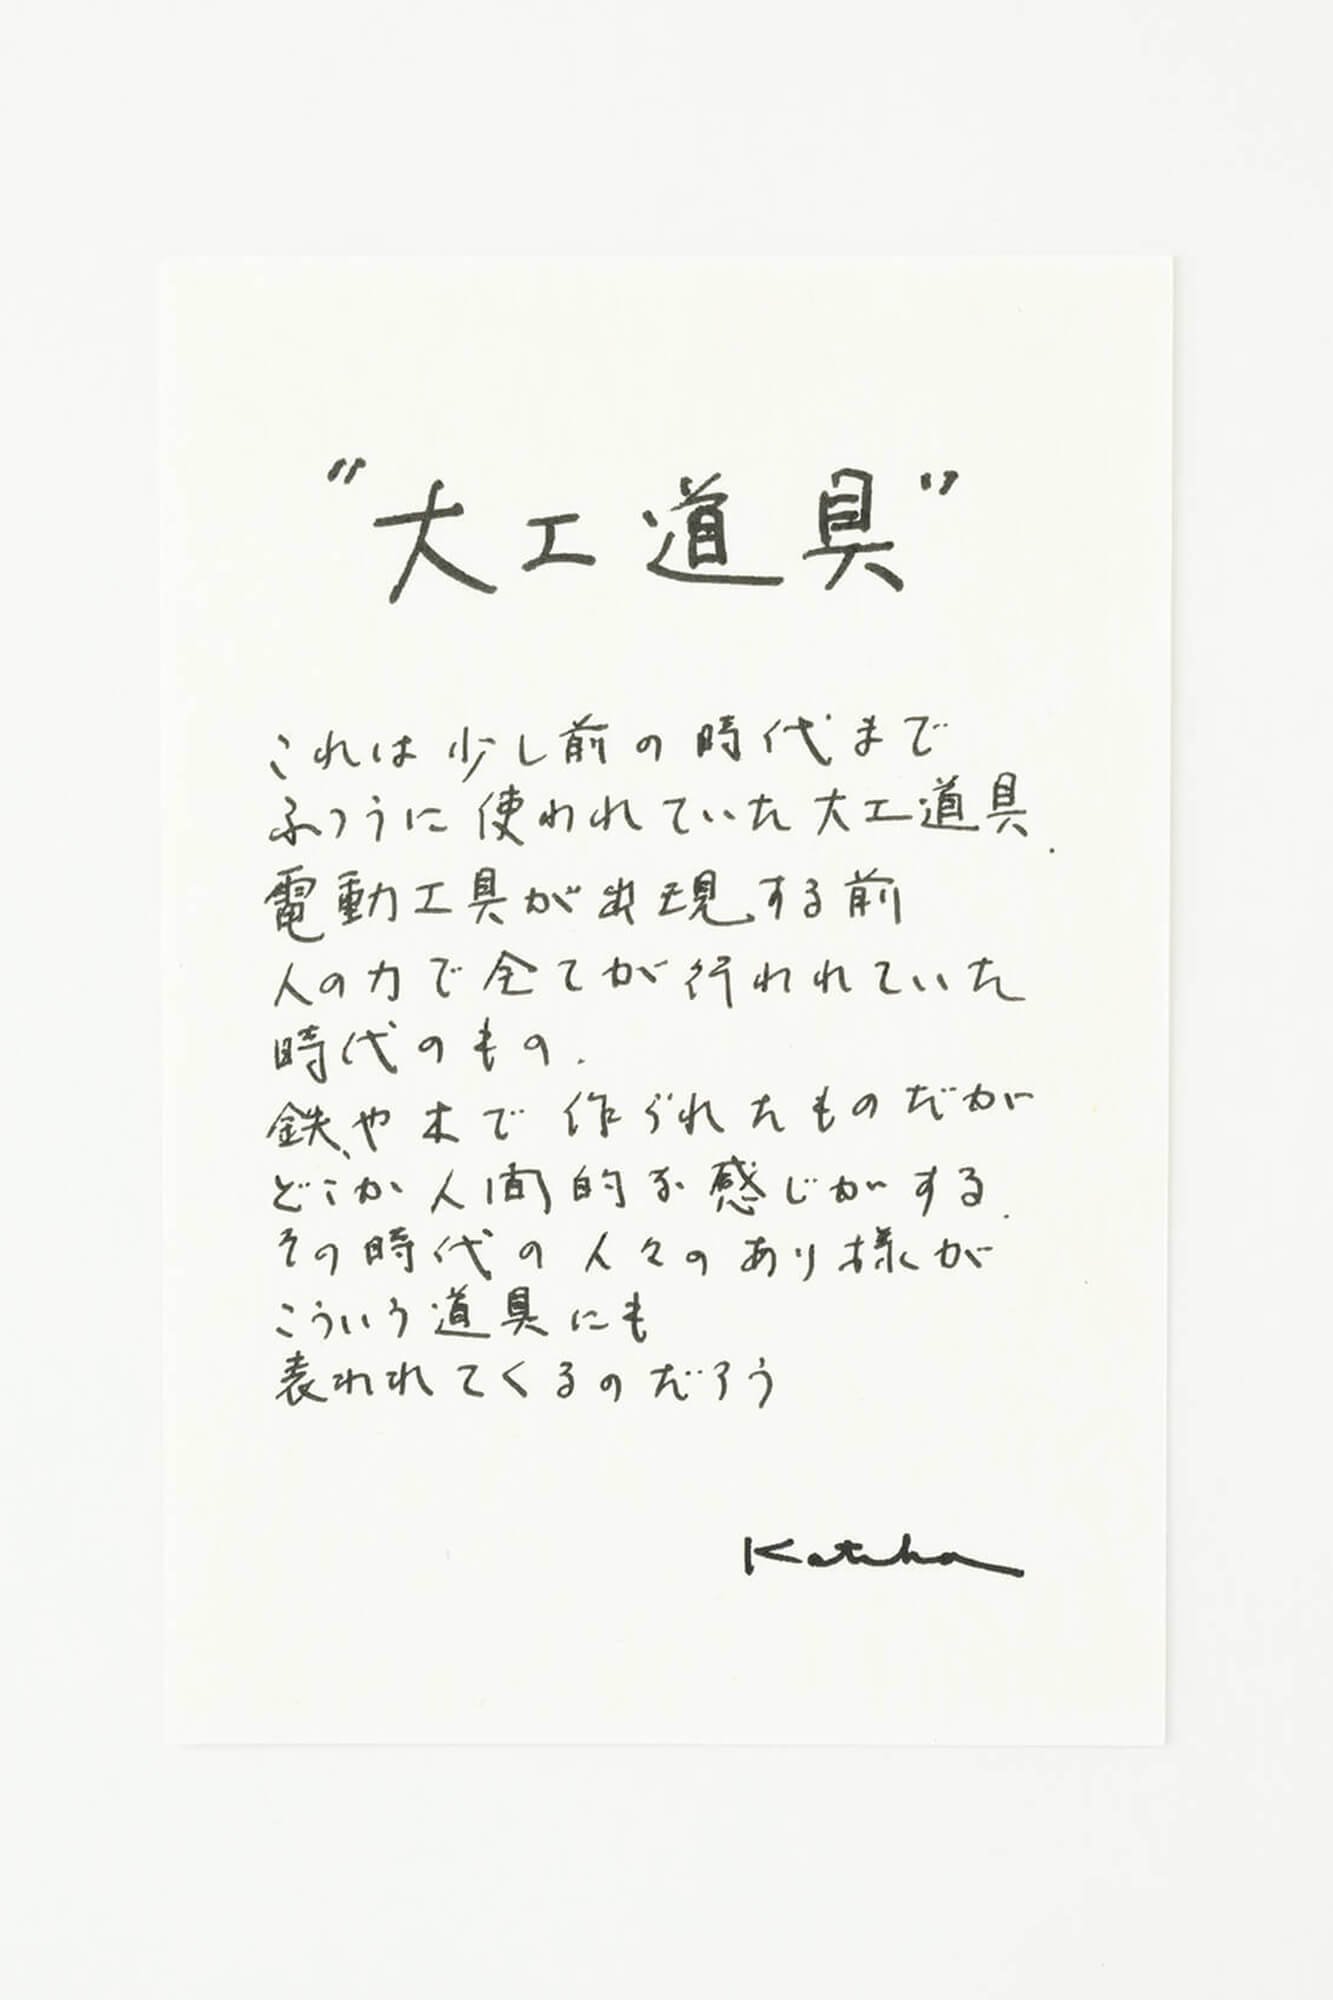 "大工道具"
これは少し前の時代まで
ふつうに使われていた大工道具.
電動工具が出現する前
人の力で全てが行われていた
時代のもの.
鉄や木で作られたものだが
どこか人間的な感じがする.
その時代の人々のあり様が
こういう道具にも
表われてくるのだろう